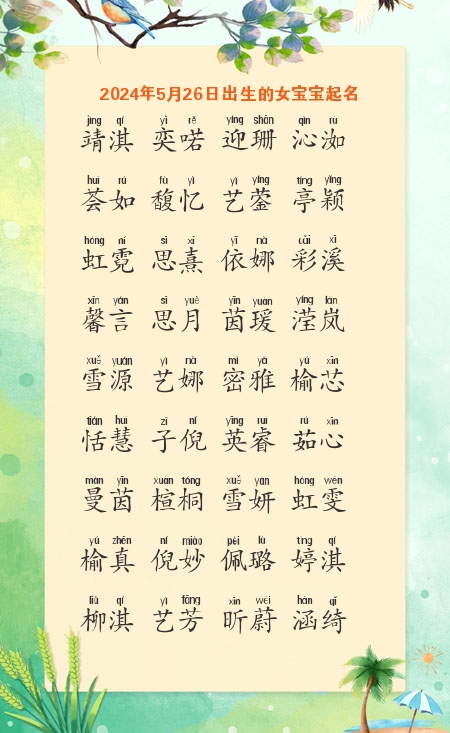 2024年5月26日出生的女宝宝起名
jìng qí yì rě yíng shān qìn rù
靖淇 奕喏 迎珊 沁洳
huì rú fù yì yì yíng tíng yǐng
荟如 馥忆 艺蓥 亭颖
hóng ní sī xī yī nà cǎi xī
虹霓 思熹 依娜 彩溪
xīn yán sī yuè yīn yuàn yíng lán
馨言 思月 茵瑗 滢岚
xuě yuán yì nà mì yǎ yú xīn
雪源 艺娜 密雅 榆芯
tián huì zǐ ní yīng ruì rú xīn
恬慧 子倪 英睿 茹心
màn yīn xuān tóng xuě yán hóng wén
曼茵 楦桐 雪妍 虹雯
yú zhēn ní miào pèi lù tíng qí
榆真 倪妙 佩璐 婷淇
liǔ qí yì fāng xīn wèi hán qǐ
柳淇 艺芳 昕蔚 涵绮